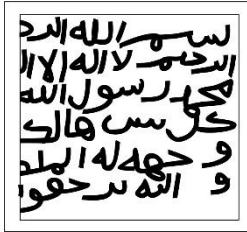 بسم الله الرح
الرحيم لا اله الا ال
محمد رسول الله
كل شى هالك
و جهه له الملك
و اليه ترجعو